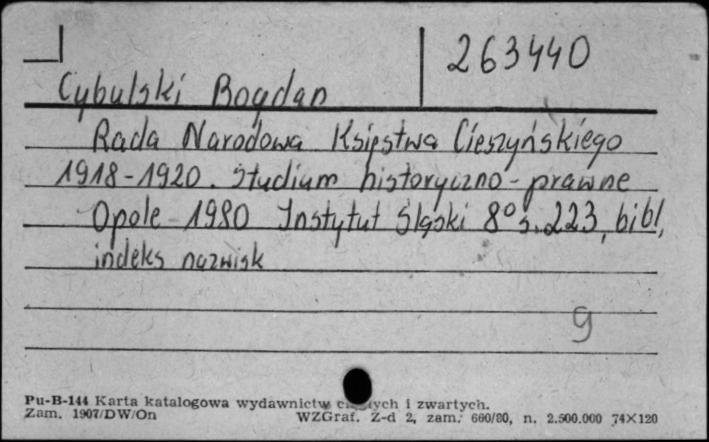 263440
Cybulski Bogdan
Rada Narodowa Księstwa Cieszyńskiego
1918-1920. Studium historyczno-prawne
Opole 1980 Instytut Śląski 8° s. 223, bibl,
indeks nazwisk
g
Pu-B-144 Karta katalogowa wydawnictw i zwartych.
Zam. 1907/DW/On WZGraf. Z-d 2, zam. 660/80, n. 2.500.000 74×120